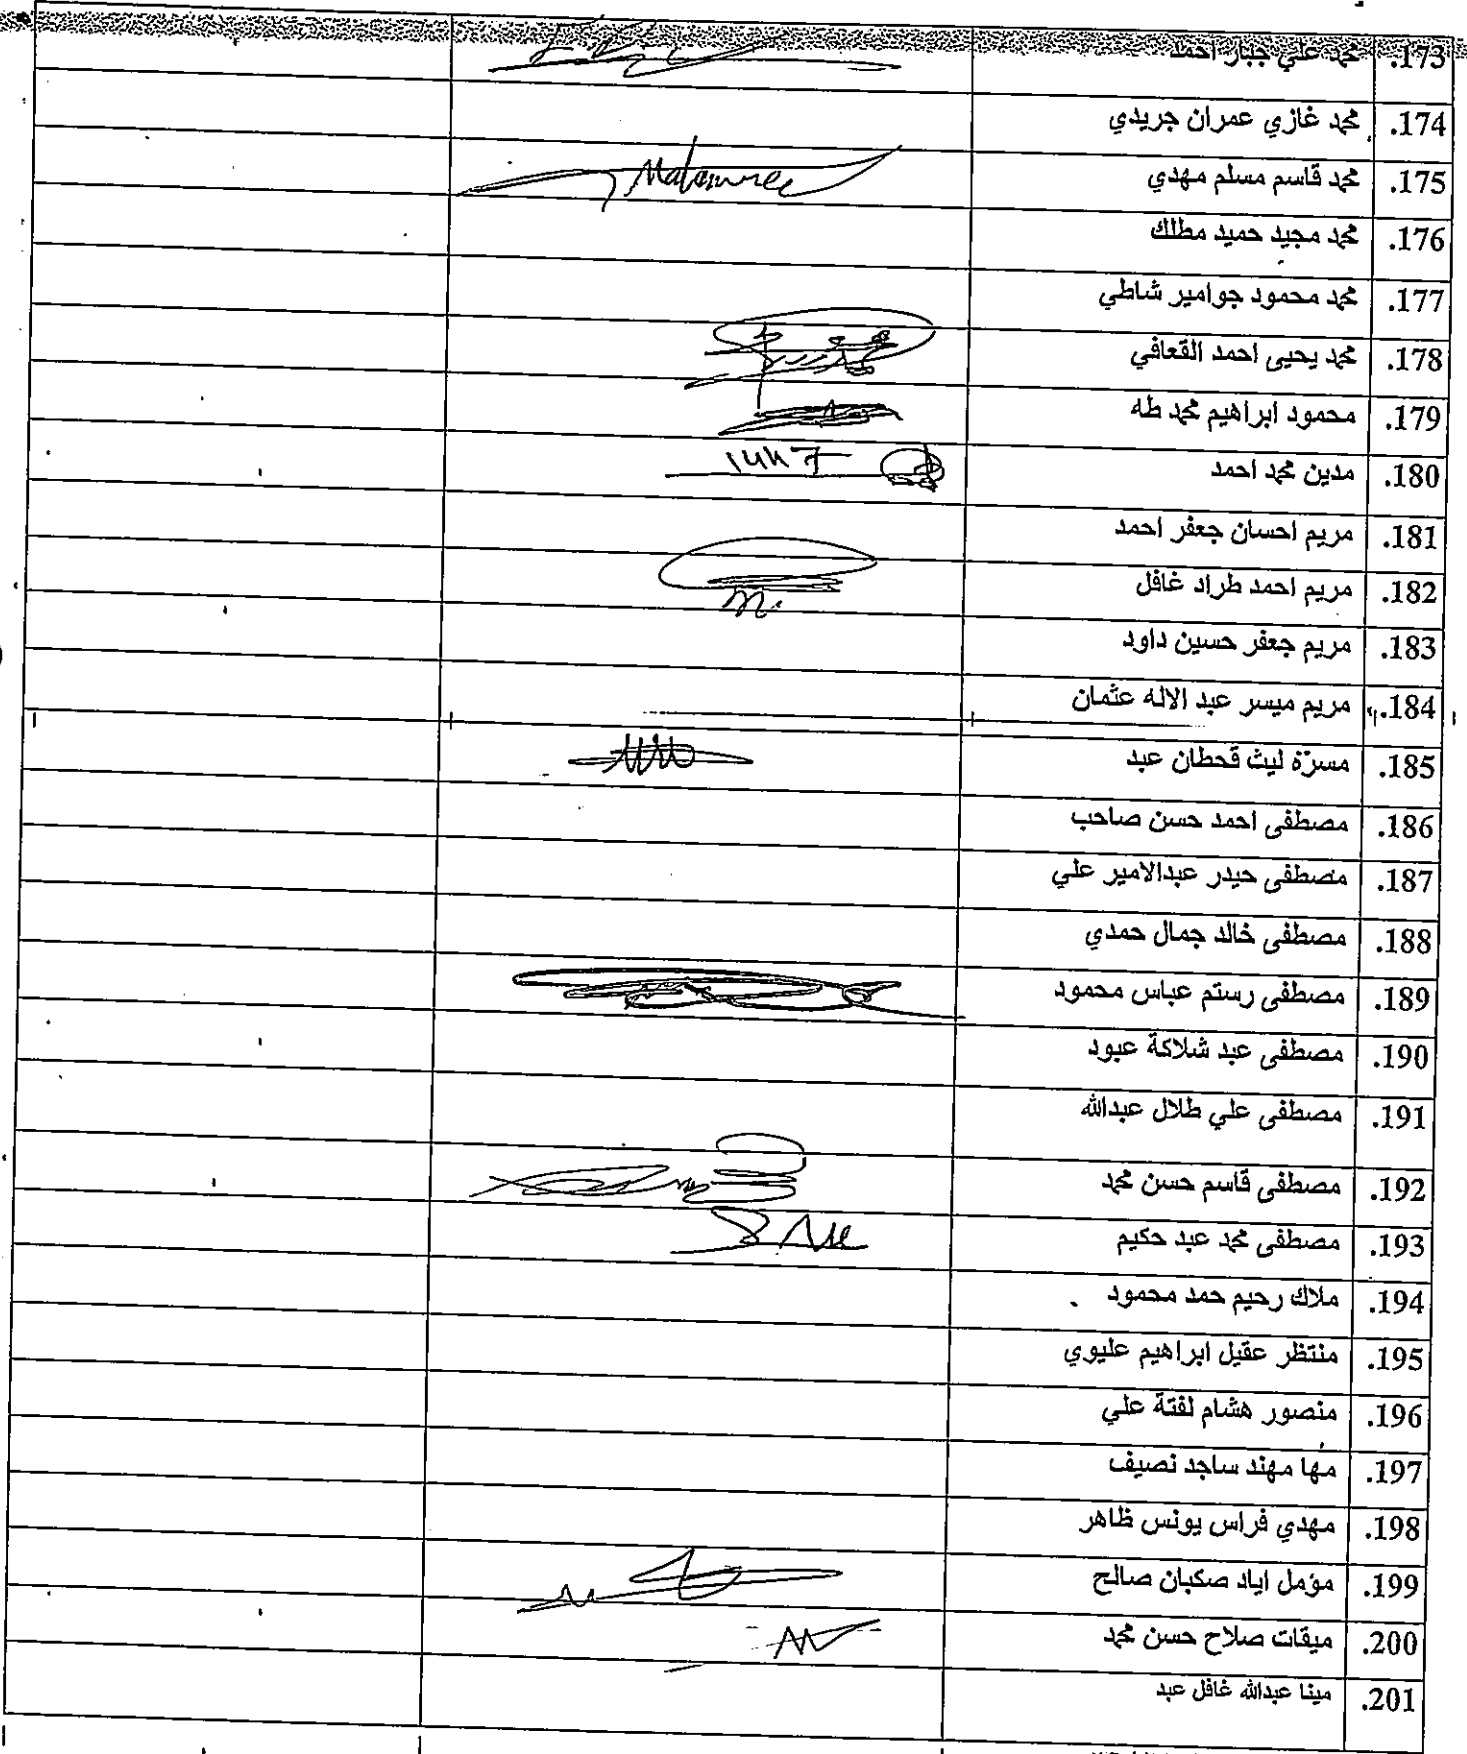 173. محمد علي جبار احمد
174. محمد غازي عمران جريدي
175. محمد قاسم مسلم مهدي
176. محمد مجيد حميد مطلك
177. محمد محمود جوامير شاطي
178. محمد يحيى احمد القعافي
179. محمود ابراهيم محمد طه
180. مدين محمد احمد
181. مريم احسان جعفر احمد
182. مريم احمد طراد غافل
183. مريم جعفر حسين داود
184. مريم ميسر عبد الاله عثمان
185. مسرّة ليث قحطان عبد
186. مصطفى احمد حسن صاحب
187. مصطفى حيدر عبدالامير علي
188. مصطفى خالد جمال حمدي
189. مصطفى رستم عباس محمود
190. مصطفى عبد شلاكة عبود
191. مصطفى علي طلال عبدالله
192. مصطفى قاسم حسن محمد
193. مصطفى محمد عبد حكيم
194. ملاك رحيم حمد محمود
195. منتظر عقيل ابراهيم عليوي
196. منصور هشام لفتة علي
197. مها مهند ساجد نصيف
198. مهدي فراس يونس ظاهر
199. مؤمل اياد صكبان صالح
200. ميقات صلاح حسن محمد
201. مينا عبدالله غافل عبد